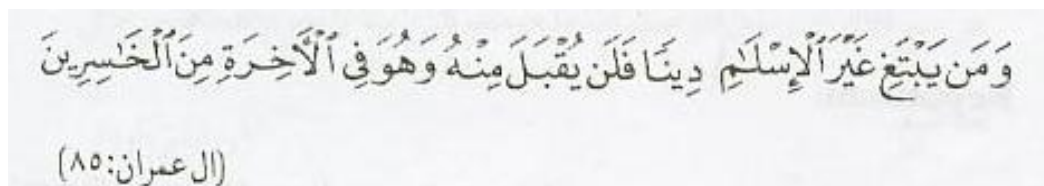 وَمَن يَبْتَغِ غَيْرَ ٱلْإِسْلَٰمِ دِينًا فَلَن يُقْبَلَ مِنْهُ وَهُوَ فِى ٱلْأَخِرَةِ مِنَ ٱلْخَٰسِرِينَ
(ال عمران:٨٥)